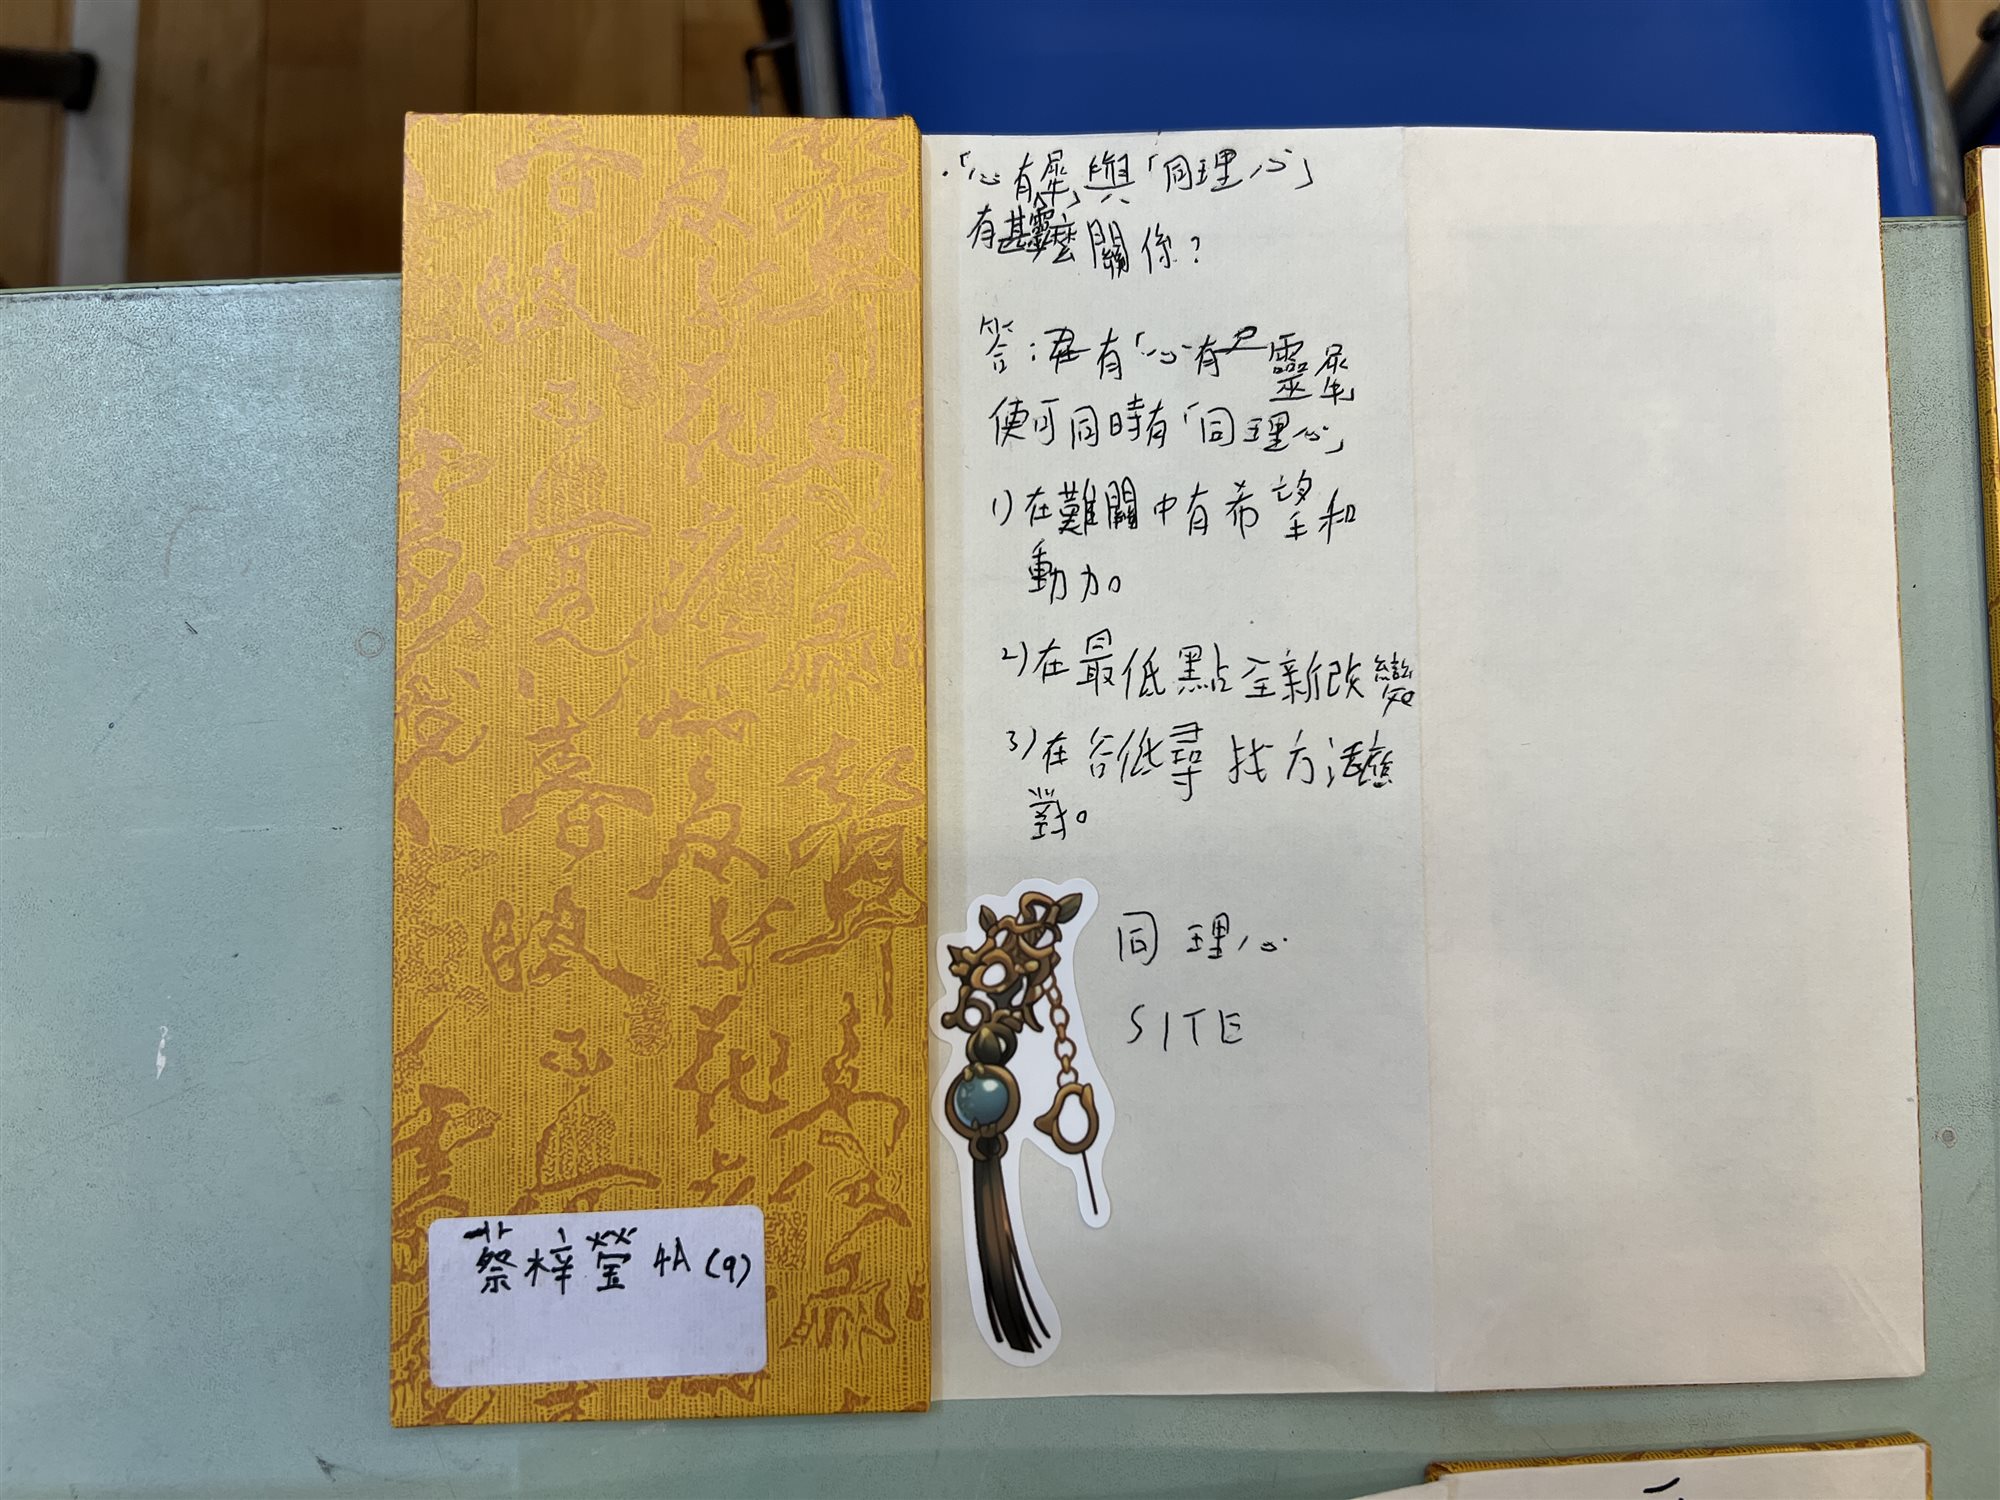 「心有犀」與「同理心」
靈
有甚麼關係?
答:有「心有靈犀
便可同時有「同理心」
1)在難關中有希望和
動力。
2)在最低點全新改變
3)在谷低尋找方法應
對。
同理心
SITE
蔡梓瑩 4A (9)